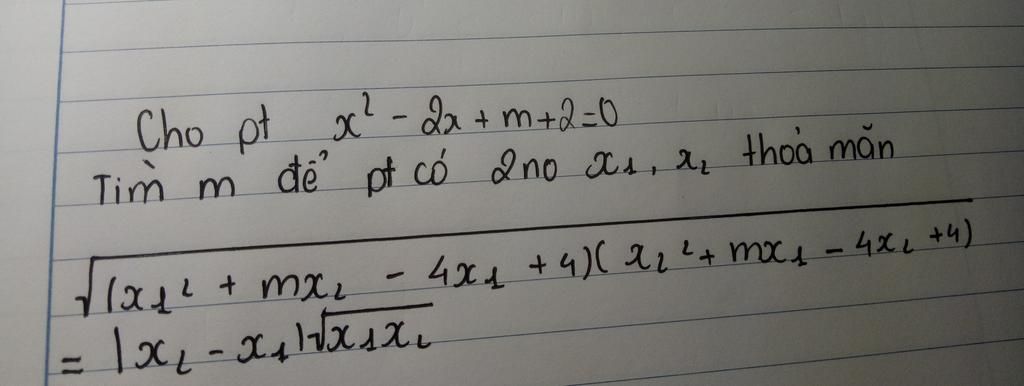 Cho pt x² - 2x + m + 2 = 0
Tìm m để pt có 2no x₁, x₂ thoả mãn
√(x₁² + mx₂ - 4x₁ + 4)(x₂² + mx₁ - 4x₂ + 4)
= |x₂ - x₁|√x₁x₂